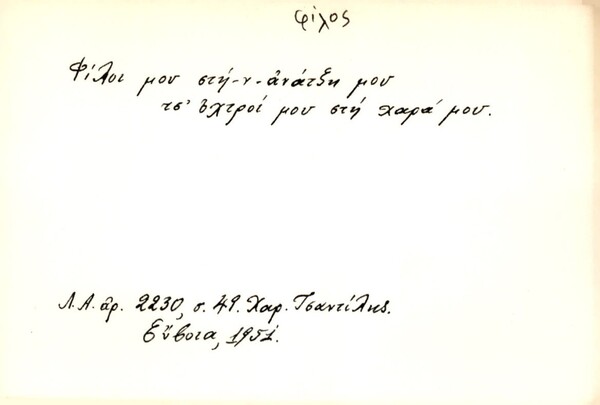 φίλος
Φίλοι μου στή-ν-ἀνάτξη μου
τσ' ὀχτροί μου στή χαρά μου.
Λ.Α. ἀρ. 2230, σ. 49. Χαρ. Τσαντίλης.
Εὔβοια, 1951.